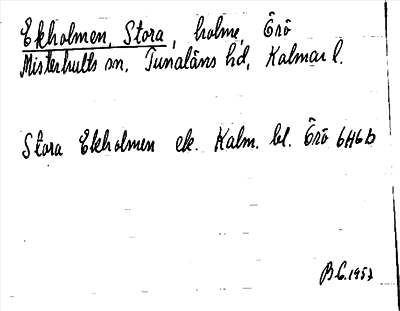 Ekholmen, Stora, holme, Örö
Misterhults sn, Tunaläns hd, Kalmar l.
Stora Ekholmen ek. Kalm. bl. Örö 6H6b
B.C. 1953